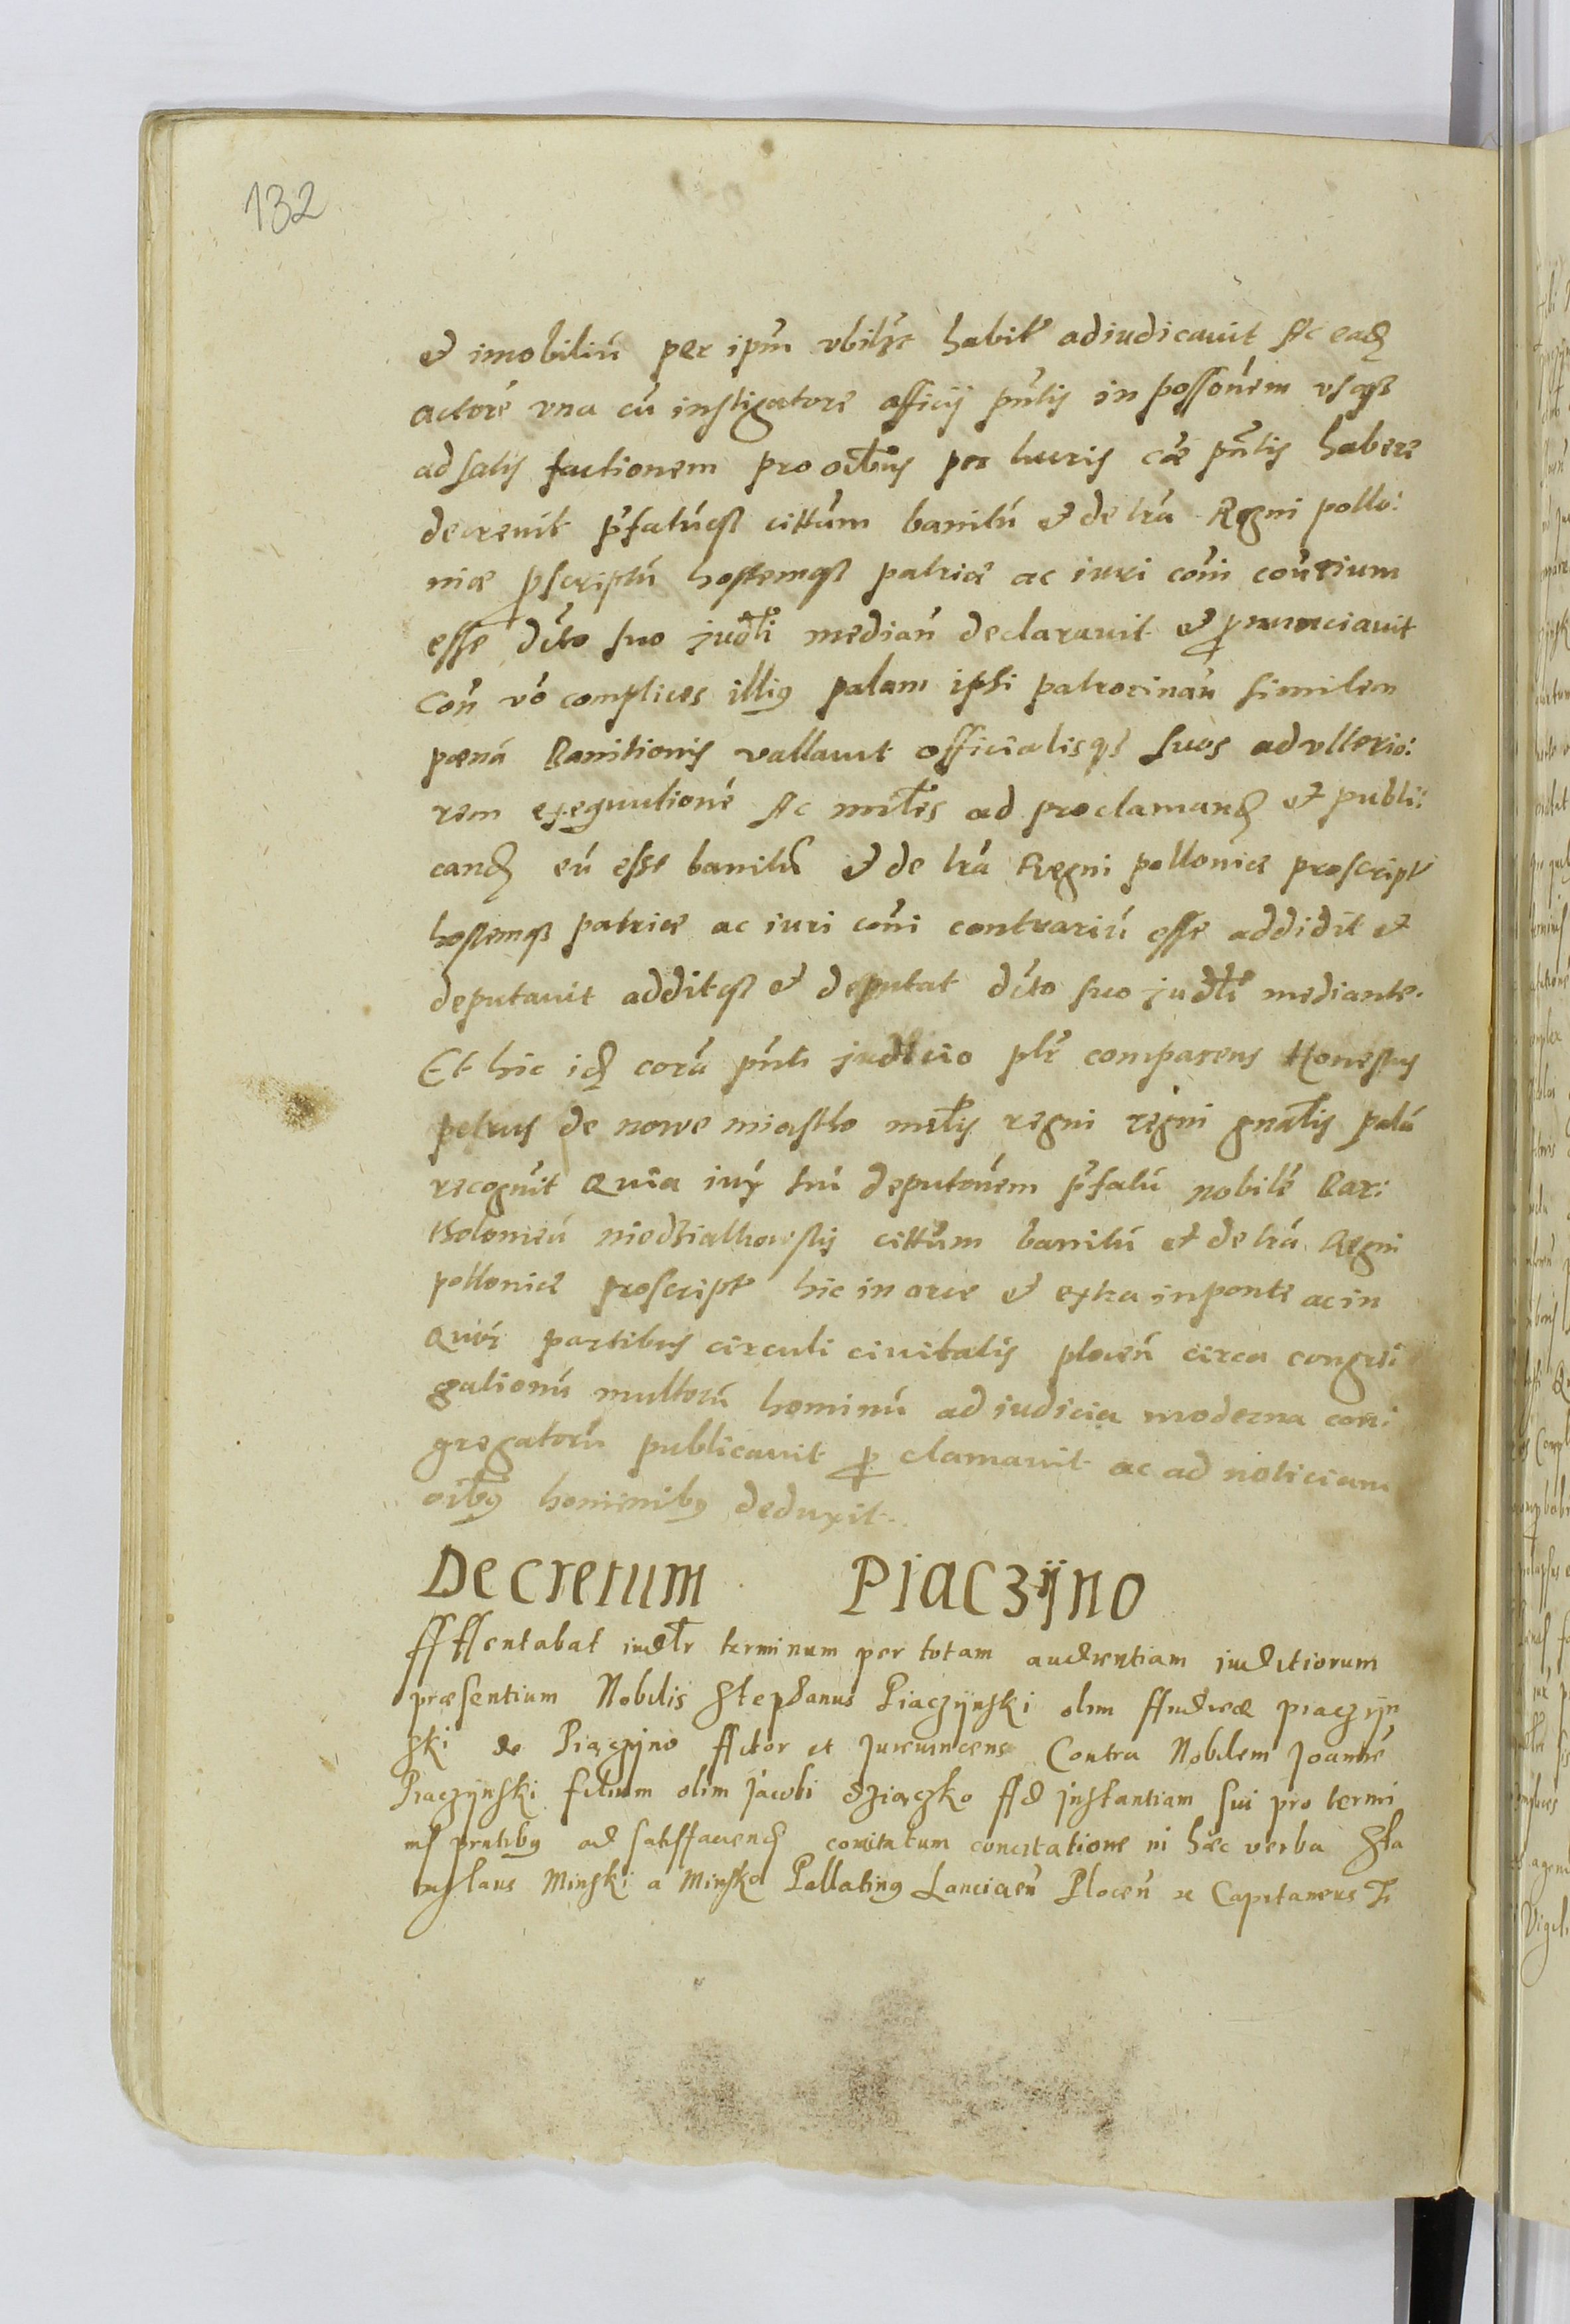 132
et imobiliū per ipm̄ vbilꝫt habit̄ adiudicavit Ac eadꝫ
actorē vna cū instigatore officij pn̄tis in possōnem vsqꝫ
ad satis factionem pro oībus per lucris cāe pn̄tis habere
decrevit p̄fatūqꝫ cittūm banitū et de trā Regni pollo:
niæ pscriptū hostemqꝫ patriæ ac iuri cōni cōntrium
esse dc̄to suo judt̄i median̄ declaravit et pnunciavit
Con̄ vō complices illiꝯ palam ipsi patrocinan̄ similem
pœnā Banitionis vallavit officialisqꝫ suos ad vlterio:
rem exequutionē Ac mīles ad proclamandꝫ et publi:
candꝫ eū esse banitū et de trā Regni polloniæ proscript̄
hostemqꝫ patriæ ac iuri cōni contrariū esse addidit et
deputavit additqꝫ et deputat dc̄to suo judt̄i mediante.
Et hic idꝫ corā pn̄ti judicio pl̄r comparens Honestus
petrus de nowe miastho mīlis regni regni gnālis palā
recognv̄it Quia iux̄ suū deputōnem p̄fatū nobilē Bar:
tholomeū niedzialkowskij cittūm banitū et de trā Regni
polloniæ proscript̄ hic in arce et extra in ponte ac in
Quōr partibus circuli civitatis plocen̄ circa congre:
gationū multorū hominū ad iudicia moderna con:
gregatorū publicavit p clamavit ac ad noticiam
oībꝯ hominibꝯ deduxit.
Decretum Piaczÿno
Attentabat iudt̄r terminum per totam audientiam iudiciorum
præsentium Nobilis Stephanus Piaczÿnski olim Andreæ piaczÿn
ski de Piączÿno Actor et Jurevincens Contra Nobilem Joannē
Piaczÿnski filium olim Jacobi dziączko Ad Instantiam sui pro termi
nis pn̄tibꝯ ad satisfaciendꝫ comitatum concitatione in hæc verba Sta
nislaus Minski a Minsko Pallatinꝯ Lanciaen̄ Plocen̄ &c Capitaneus